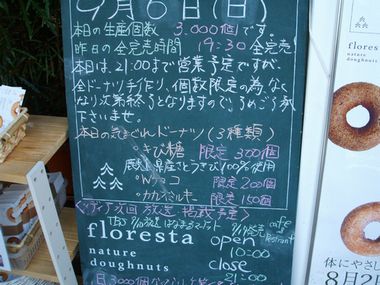 9月6日(日)
本日の生産個数 3,000個です。
昨日の全完売時間 19:30全完売
本日は、21:00まで営業予定ですが、
全ドーナツ手作り、個数限定の為、なく
なり次第終了となりますので、ごりょうしょう
下さいませ。
本日の気まぐれドーナツ(3種類)
・きび糖 限定300個
県産さとうきび100%使用
・Wショコ 限定200個
・カカオミルキー 限定150個
floresta
nature
doughnuts
open
10:00
close
21:00
floresta
nature
doughnuts
体にやさし
8月2